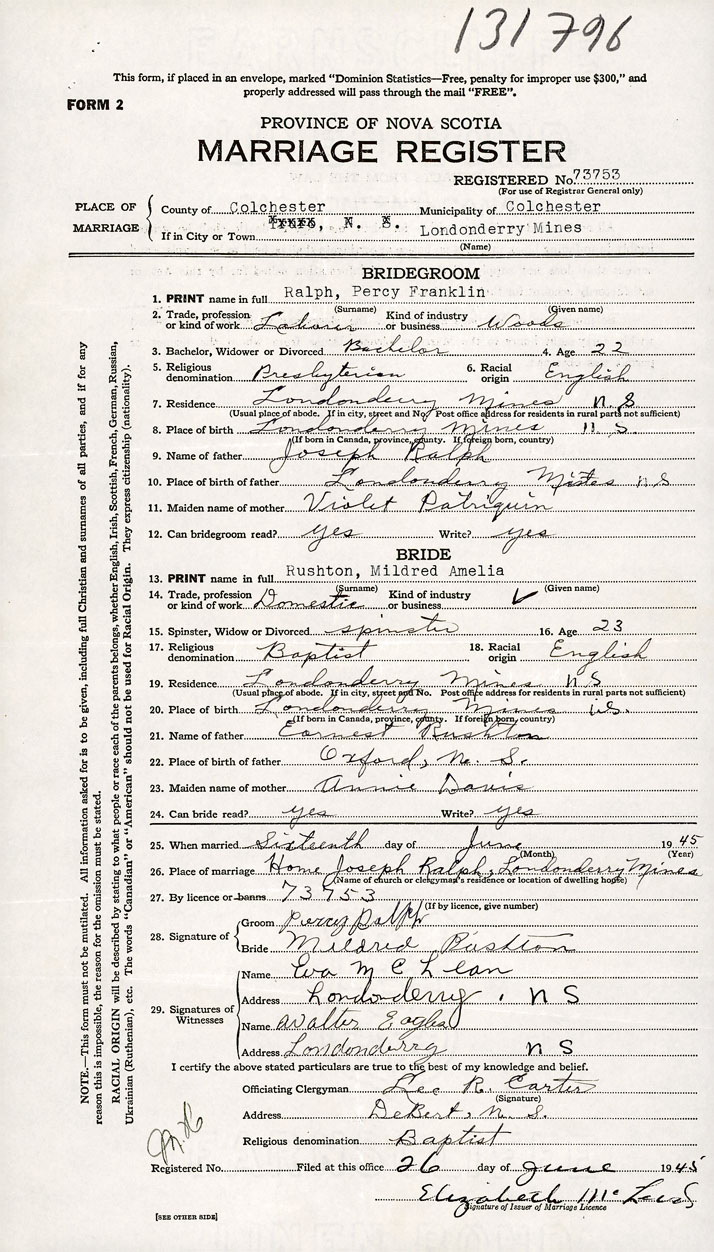 131796
This form, if placed in an envelope, marked "Dominion Statistics—Free, penalty for improper use $300," and
properly addressed will pass through the mail "FREE".
FORM 2
PROVINCE OF NOVA SCOTIA
MARRIAGE REGISTER
REGISTERED No. 73753
(For use of Registrar General only)
PLACE OF MARRIAGE
County of Colchester Municipality of Colchester
If in City or Town , N. S. Londonderry Mines
(Name)
BRIDEGROOM
1. PRINT name in full Ralph, Percy Franklin
(Surname) (Given name)
2. Trade, profession or kind of work Laborer Kind of industry or business Woods
3. Bachelor, Widower or Divorced Bachelor 4. Age 22
5. Religious denomination Presbyterian 6. Racial origin English
7. Residence Londonderry Mines N.S
(Usual place of abode. If in city, street and No. Post office address for residents in rural parts not sufficient)
8. Place of birth Londonderry Mines N.S.
(If born in Canada, province, county. If foreign born, country)
9. Name of father Joseph Ralph
10. Place of birth of father Londonderry Mines N S
11. Maiden name of mother Violet Patriquin
12. Can bridegroom read? yes Write? yes
BRIDE
13. PRINT name in full Rushton, Mildred Amelia
(Surname) (Given name)
14. Trade, profession or kind of work Domestic Kind of industry or business ✓
15. Spinster, Widow or Divorced spinster 16. Age 23
17. Religious denomination Baptist 18. Racial origin English
19. Residence Londonderry Mines N.S
(Usual place of abode. If in city, street and No. Post office address for residents in rural parts not sufficient)
20. Place of birth Londonderry Mines N.S.
(If born in Canada, province, county. If foreign born, country)
21. Name of father Earnest Rushton
22. Place of birth of father Oxford, N. S.
23. Maiden name of mother Annie Davis
24. Can bride read? yes Write? yes
25. When married Sixteenth day of June 1945
(Month) (Year)
26. Place of marriage Home Joseph Ralph, Londonderry Mines
(Name of church or clergyman's residence or location of dwelling house)
27. By licence or banns 73753
(If by licence, give number)
28. Signature of
Groom Percy Ralph
Bride Mildred Rushton
29. Signatures of Witnesses
Name Eva McLean
Address Londonderry. N S
Name Walter Eagles
Address Londonderry N S
I certify the above stated particulars are true to the best of my knowledge and belief.
Officiating Clergyman Lee R. Carter
(Signature)
Address DeBert, N. S.
Religious denomination Baptist
Registered No. Filed at this office 26 day of June 1945
Elizabeth
Signature of Issuer of Marriage Licence
[SEE OTHER SIDE]
NOTE.—This form must not be mutilated. All information asked for is to be given, including full Christian and surnames of all parties, and if for any
reason this is impossible, the reason for the omission must be stated.
RACIAL ORIGIN will be described by stating to what people or race each of the parents belongs, whether English, Irish, Scottish, French, German, Russian,
Ukrainian (Ruthenian), etc. The words "Canadian" or "American" should not be used for Racial Origin. They express citizenship (nationality).